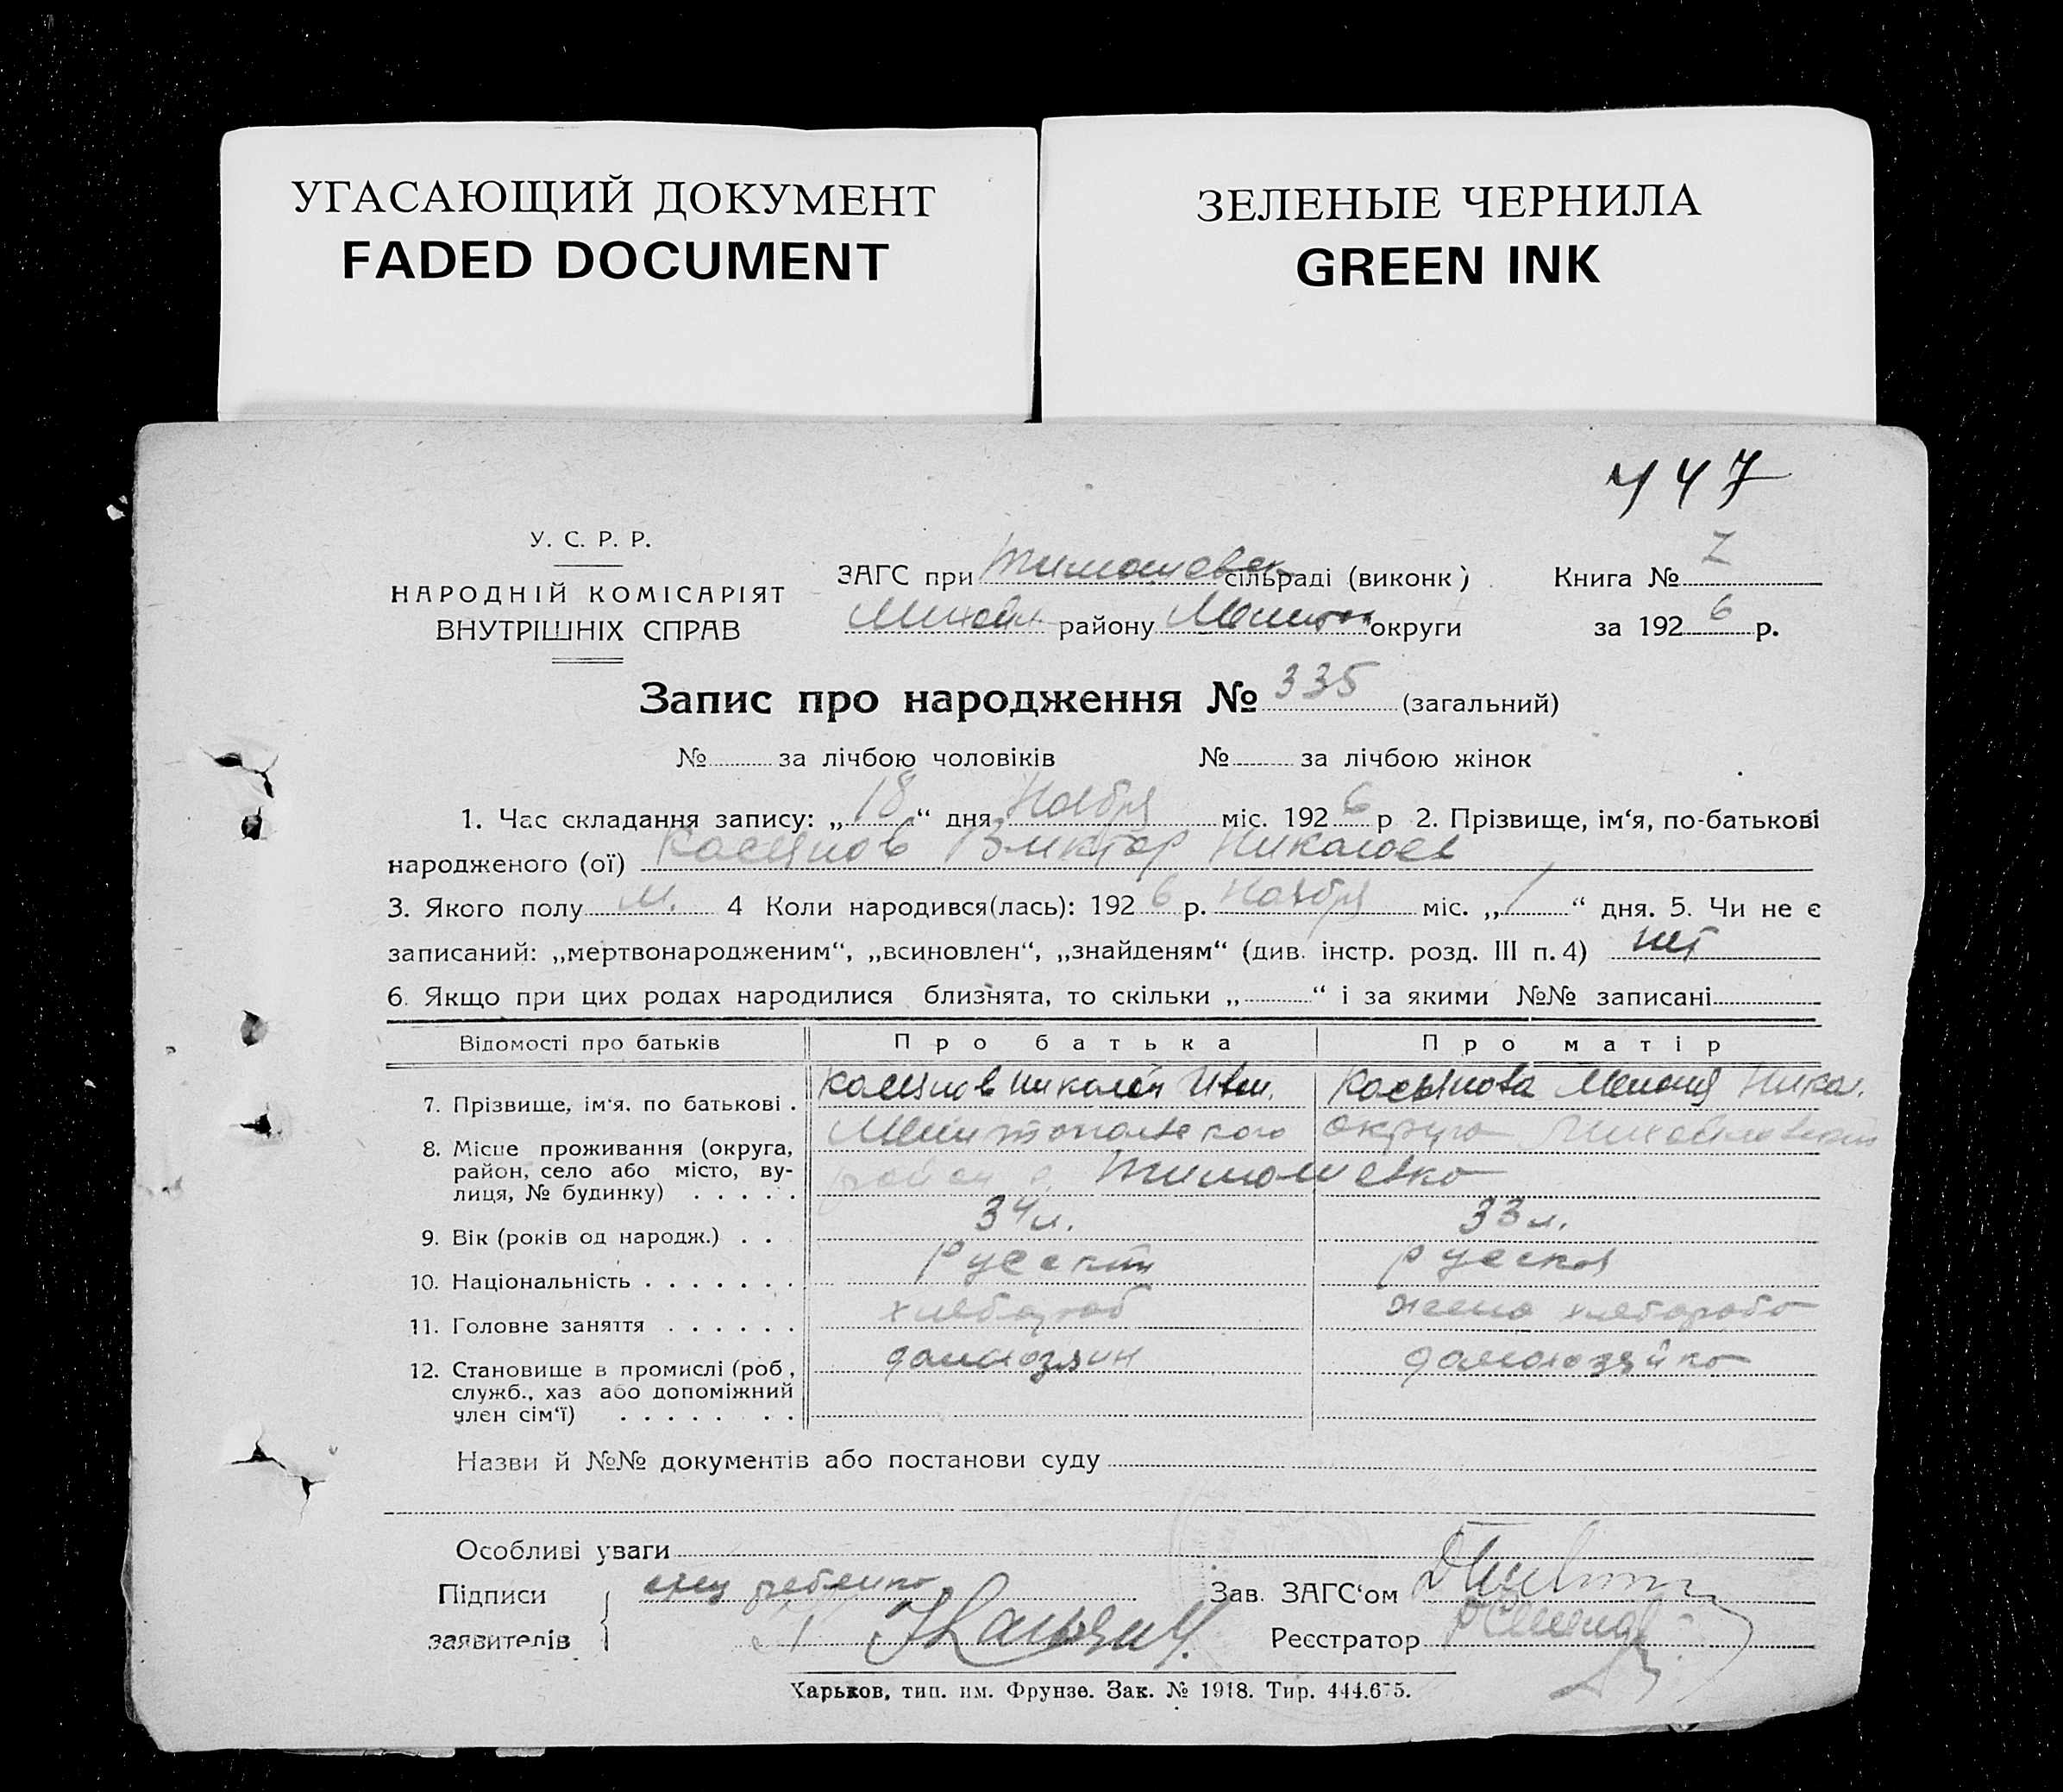 УГАСАЮЩИЙ ДОКУМЕНТ
FADED DOCUMENT
ЗЕЛЕНЫЕ ЧЕРНИЛА
GREEN INK
447
У. С. Р. Р.
НАРОДНІЙ КОМІСАРІЯТ
ВНУТРІШНІХ СПРАВ
ЗАГС при Тимошевск сільраді (виконк)
Михайл. району Мелитоп округи
Книга № 2
за 1926 р.
Запис про народження № 335 (загальний)
№ за лічбою чоловіків № за лічбою жінок
1. Час складання запису: „18“ дня Ноября міс. 1926 р 2. Прізвище, ім‘я, по-батькові
народженого (ої) Касянов Виктор Николаев
3. Якого полу м. 4 Коли народився(лась): 1926 р. Ноября міс. „1“ дня. 5. Чи не є
записаний: „мертвонародженим“, „всиновлен“, „знайденям“ (див. інстр. розд. III п. 4) нет
6. Якщо при цих родах народилися близнята, то скільки „ “ і за якими №№ записані
Відомості про батьків Про батька Про матір
7. Прізвище, ім‘я, по батькові . Касянов Николай Иван. Касьянова Никол.
8. Місце проживання (округа, район, село або місто, вулиця, № будинку) . . . . . Мелитопольского округа Михайловского
район с. Тимошевка
9. Вік (років од народж.) . . 34 л. 33 л.
10. Національність . . . . . . . русский русская
11. Головне заняття . . . . . . хлебороб жена хлебороба
12. Становище в промислі (роб, служб., хаз або допоміжний член сім‘ї) . . . . . . . домохозяин домохозяйка
Назви й №№ документів або постанови суду
Особливі уваги
Підписи заявителів отец ребенка
Зав. ЗАГС‘ом
Реєстратор
Харьков, тип. им. Фрунзе. Зак. № 1918. Тир. 444.675.